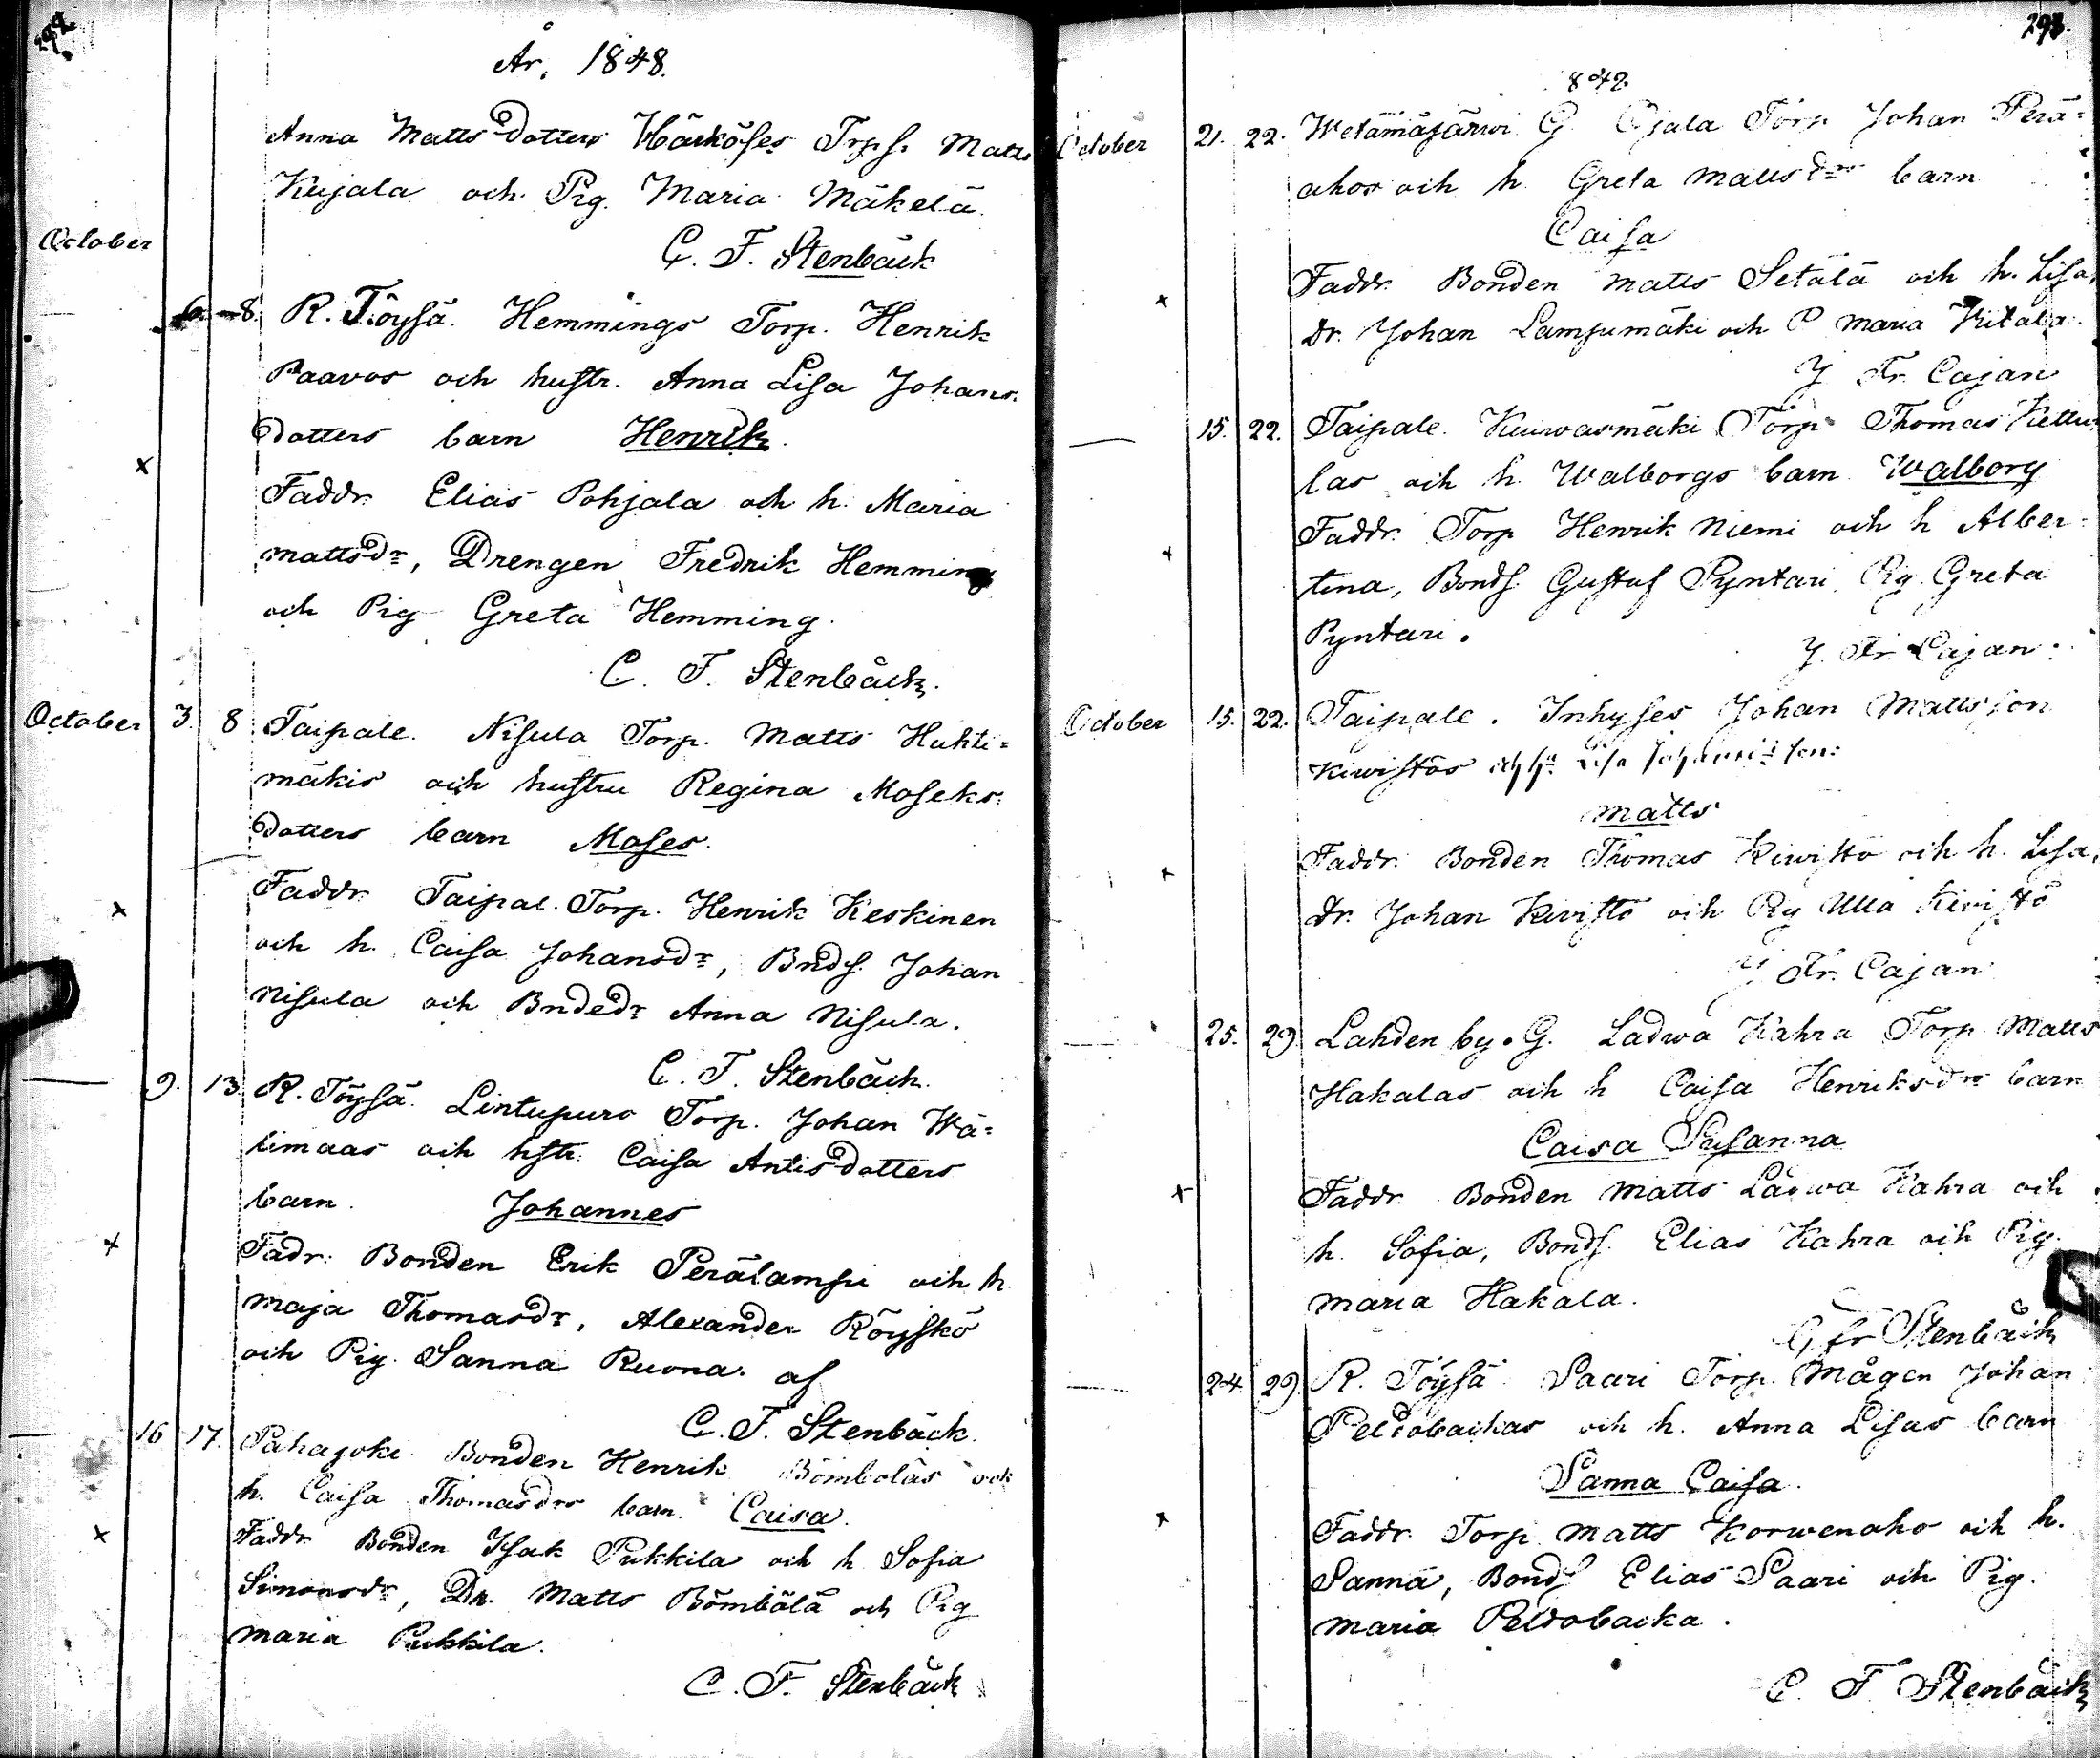 292.
År, 1848.
Anna Matts Dotters Härköses Trps. Matts
Kujala och Pig. Maria Mäkelä
C. F. Stenbäck
October
6. 8. R. Töysä. Hemmings Torp. Henrik
Paavos och hustr. Anna Lisa Johans.
dotters barn Henrik.
Faddr. Elias Pohjala och h. Maria
Mattsdr, Drengen Fredrik Hemming
och Pig Greta Hemming.
C. F. Stenbäck.
October 3. 8 Taipale. Nisula Torp. Matts Huhti=
mäkis och hustru Regina Moseks.
dotters barn Moses.
Faddr Taipal. Torp. Henrik Keskinen
och h. Caisa Johansdr, Bnds. Johan
Nisula och Bndedr Anna Nisula.
C. F. Stenbäck.
9. 13. R. Töysä. Lintupuro Torp. Johan Wä=
limaas och hstr. Caisa Antisdotters
barn. Johannes
Fadr. Bonden Erik Perälampi och h.
Maja Thomasdr, Alexander Röyskö
och Pig. Sanna Ruona. af
C. F. Stenbäck.
16 17. Pahajoki. Bonden Henrik Bömbolas och
h. Caisa Thomasdrs barn. Caisa.
Faddr. Bonden Isak Pukkila och h Sofia
Simonsdr, Dr. Matts Bömbälä och Pig
Maria Pukkila.
C. F. Stenbäck
293.
848
October 21. 22. Wetämäjärwi G. Ojala Torp Johan Perä=
ahos och h Greta Mattsdrs barn
Caisa
Faddr. Bonden Matts Setälä och h. Lisa,
Dr. Johan Lampimäki och P Maria
J Fr. Cajan
15. 22. Taipale. Kuiwasmäki Torp Thomas Kettu
las och h Walborgs barn Walborg
Faddr. Torp Henrik Niemi och h Alber=
tina, Bonds Gustaf Pyntäri, Pig. Greta
Pyntari.
J. Fr. Cajan.
October 15. 22. Taipale. Inhyses Johan Mattsson
Kiwistös och h. Lisa
Matts
Faddr. Bonden Thomas Kiwistö och h. Lisa,
Dr. Johan Kiwistö och Pig Ulla Kiwistö
J Fr. Cajan
25. 29 Lahden by. G. Ladwa Kahra Torp Matts
Hakalas och h Caisa Henriksdrs barn
Caisa Susanna
Faddr. Bonden Matts Ladwa Kahra och
h. Sofia, Bonds. Elias Kahra och Pig.
Maria Hakala.
C Fr Stenbäck
24. 29. R. Töysä Saari Torp. Mågen Johan
Peldobackas och h. Anna Lisas barn
Sanna Caisa.
Faddr Torp Matts Korwenaho och h.
Sanna, Bonds Elias Saari och Pig.
Maria Peldobacka.
C. F Stenbäck